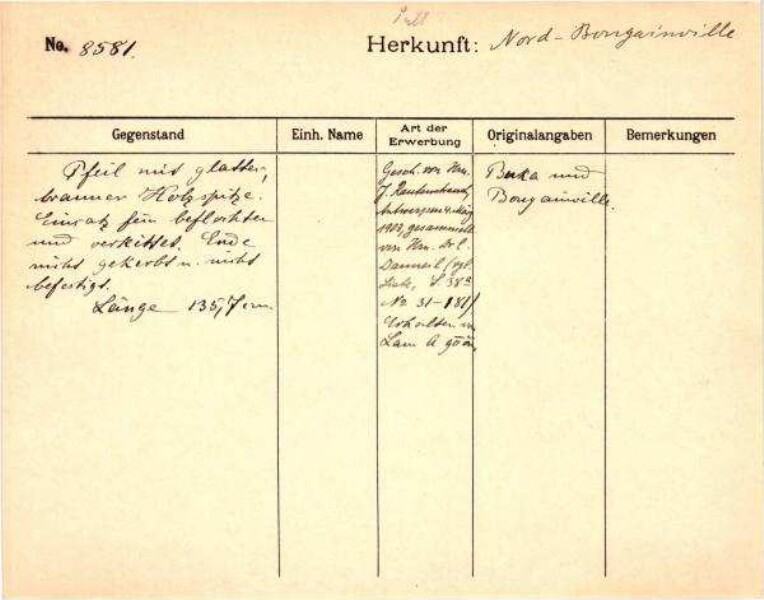 No. 8581.
Herkunft: Nord-Bougainville
Gegenstand
Einh. Name
Art der Erwerbung
Originalangaben
Bemerkungen
Pfeil mit glatter,
brauner Holzspitze.
Einsatz fein beflochten
und verkittet. Ende
nicht gekerbt u. nicht
befestigt.
Länge 135,7 cm.
Gesch. von Hrn.
J. Rautenstrauch,
Antwerpen 4. März
1908, gesammelt
von Hrn. Dr. C.
Danneil (vgl.
Liste, S. 38a
No 31-181)
Erhalten in
Lam A
Buka und
Bougainville.